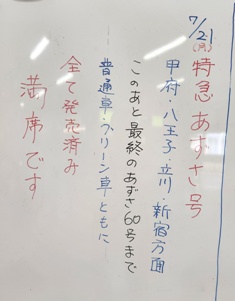 7/21(月)
特急あずさ号
甲府・八王子・立川・新宿方面
このあと最終のあずさ60号まで
普通車・グリーン車ともに
全て発売済み
満席です